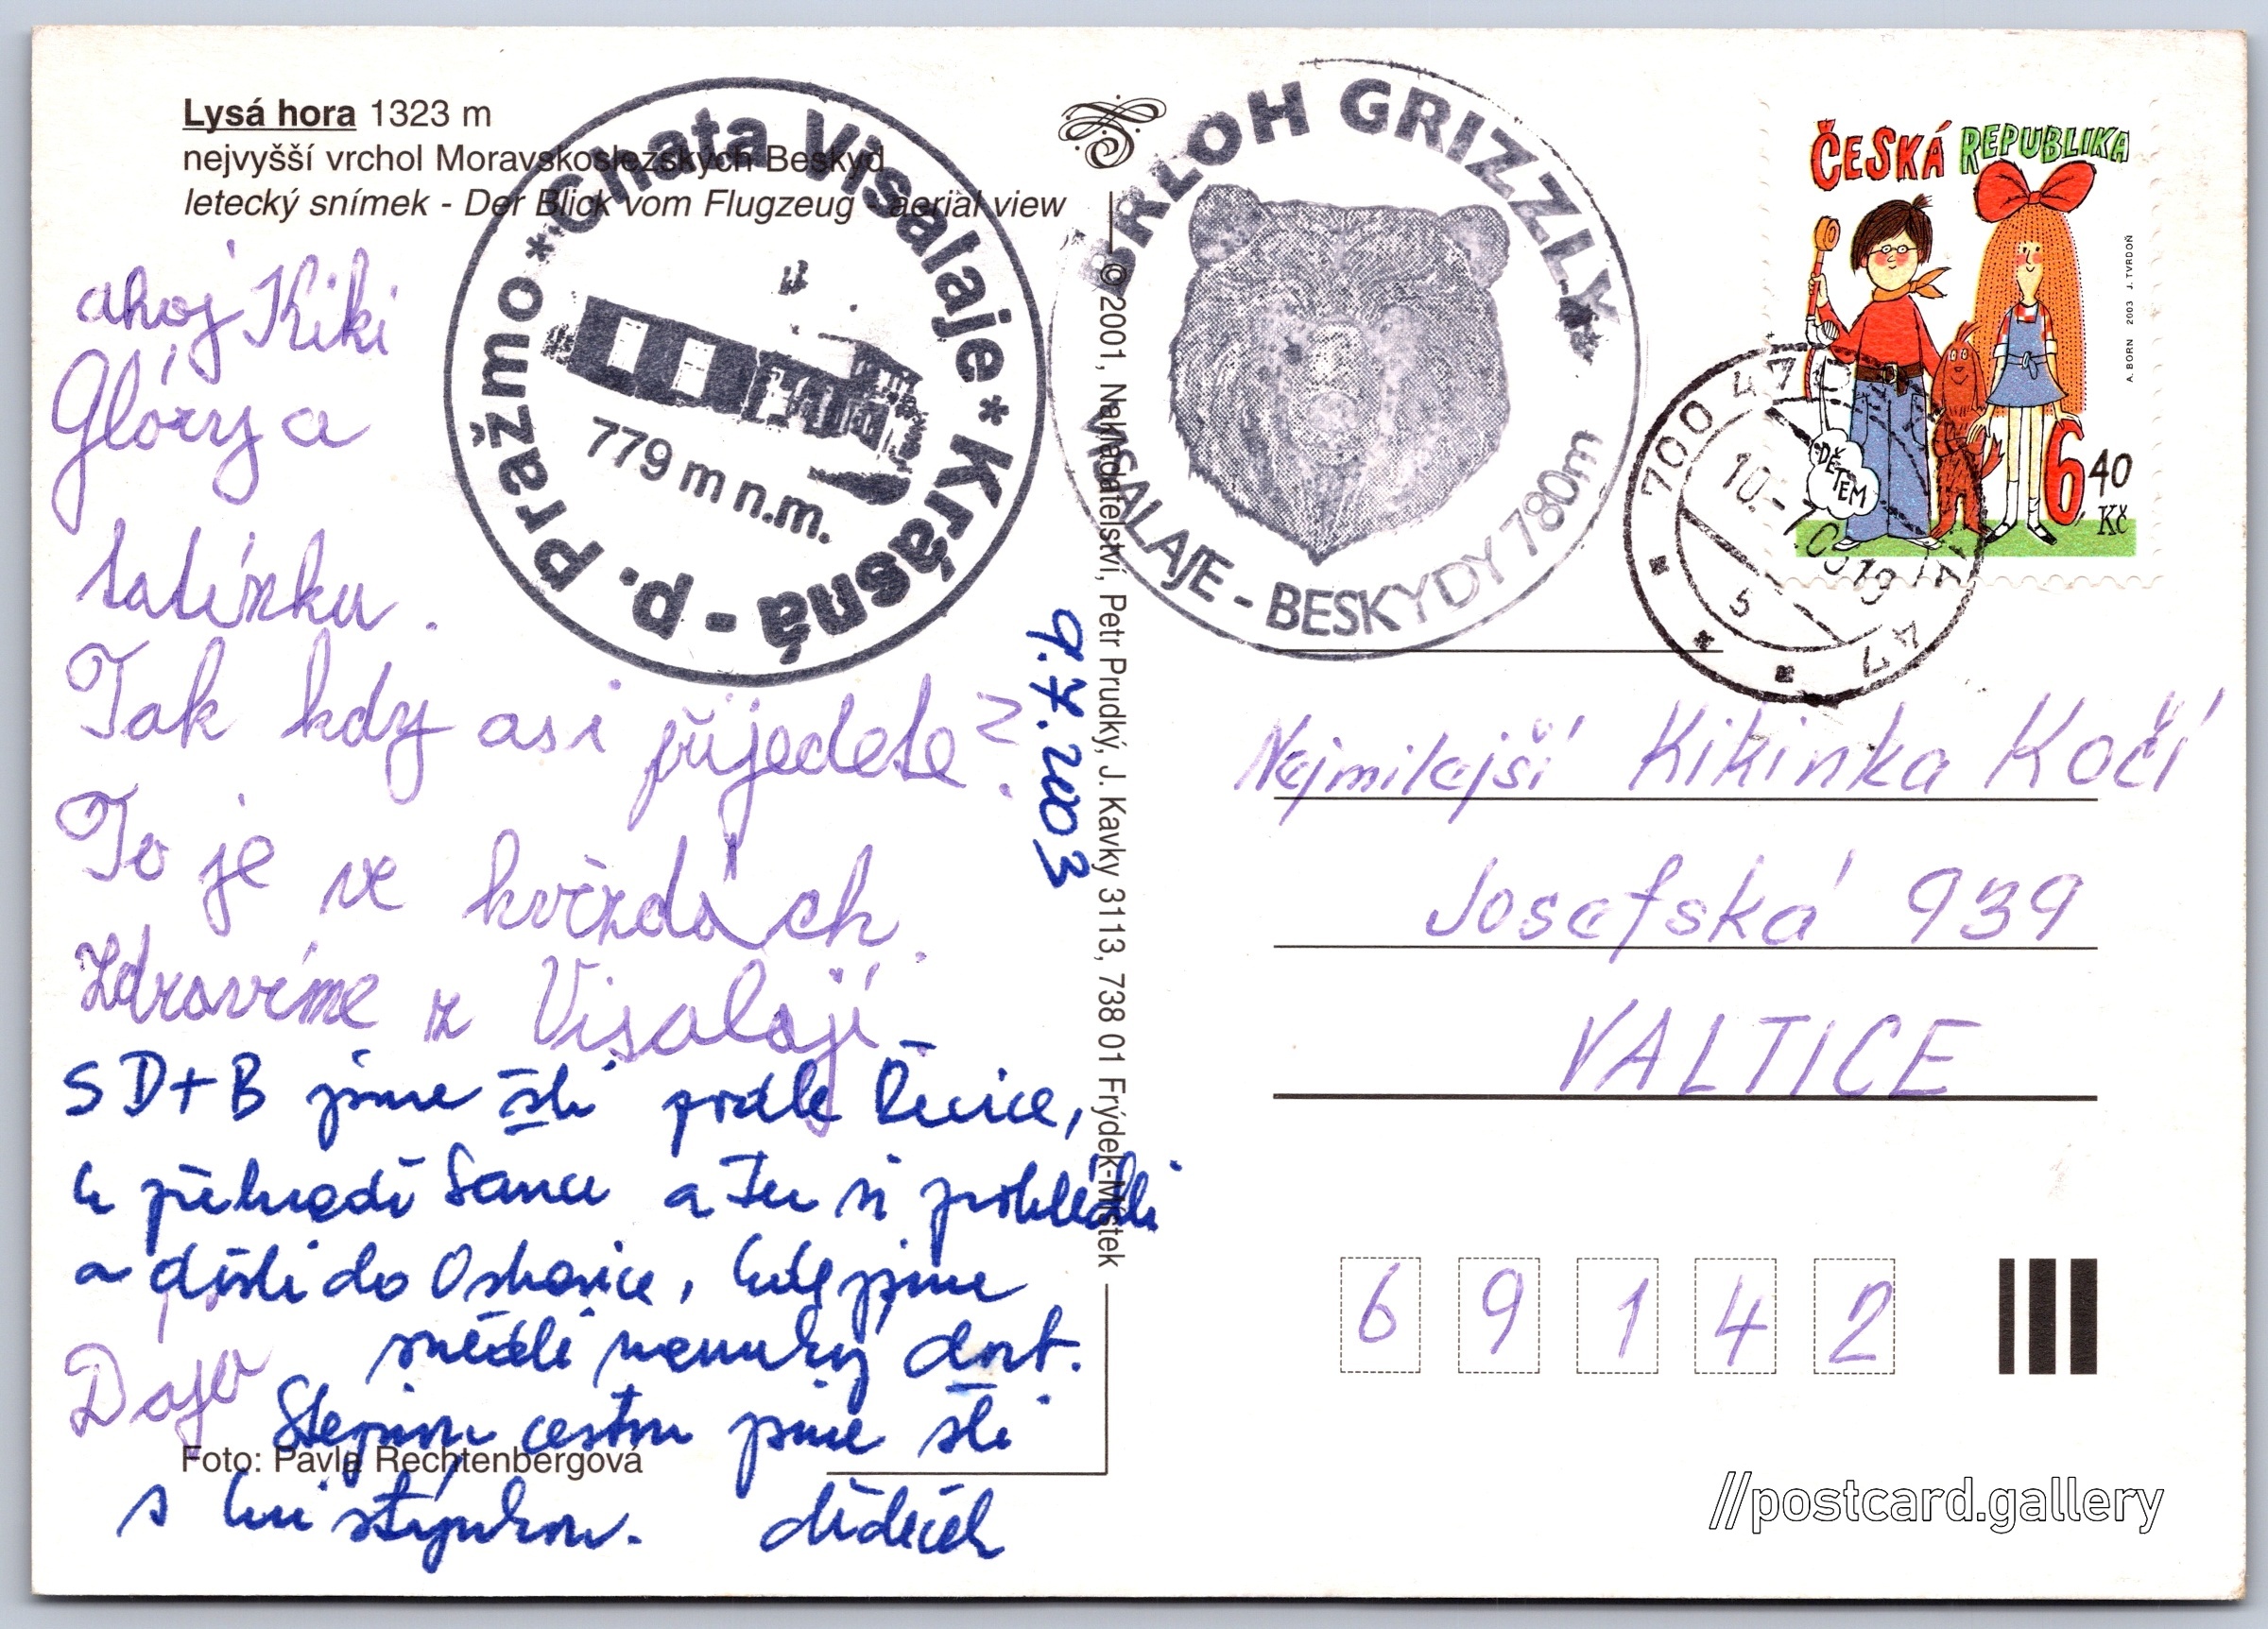 Lysá hora 1323 m
nejvyšší vrchol Moravskoslezských Beskyd
letecký snímek - Der Blick vom Flugzeug - aerial view
* Chata Visalaje * Krásná - p. Pražmo
779 m n.m.
BRLOH GRIZZLY
VISALAJE - BESKYDY 780m
ČESKÁ REPUBLIKA
DĚTEM
6,40
Kč
A. BORN 2003 J. TVRDOŇ
700 47
10.-7.03-19
5
47
ahoj Kiki
Glóry a
tatínku.
Tak kdy asi přijedete?
To je ve hvězdách.
Zdravíme z Visalají
S D+B jsme šli podle Řečice,
k přehradě Šance a tu si prohlédli
a došli do Ostravice, kde jsme
snědli dort.
Stejnou cestou jsme šli
s
dědeček
Dája
9.7.2003
© 2001, Nakladatelství, Petr Prudký, J. Kavky 3113, 738 01 Frýdek-Místek
Nejmilejší Kikinka Kočí
Josefská 939
VALTICE
6 9 1 4 2
Foto: Pavla Rechtenbergová
//postcard.gallery